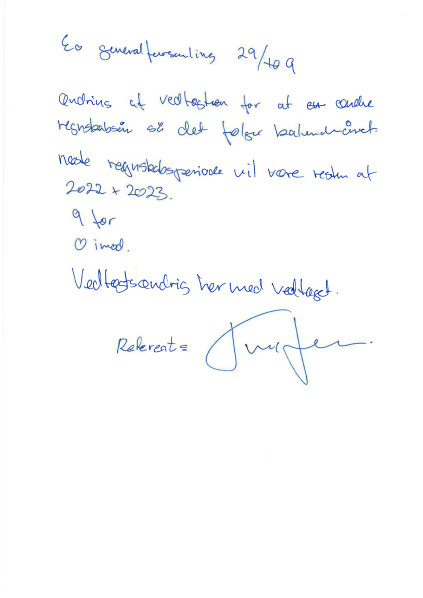 Eo generalforsamling 29/10 9
Ændring af vedtægten for at ændre
regnskabsår så det følger kalenderåret
næste regnskabsperiode vil være resten af
2022 + 2023.
9 for
0 imod.
Vedtægtsændrig her med vedtaget.
Referent=